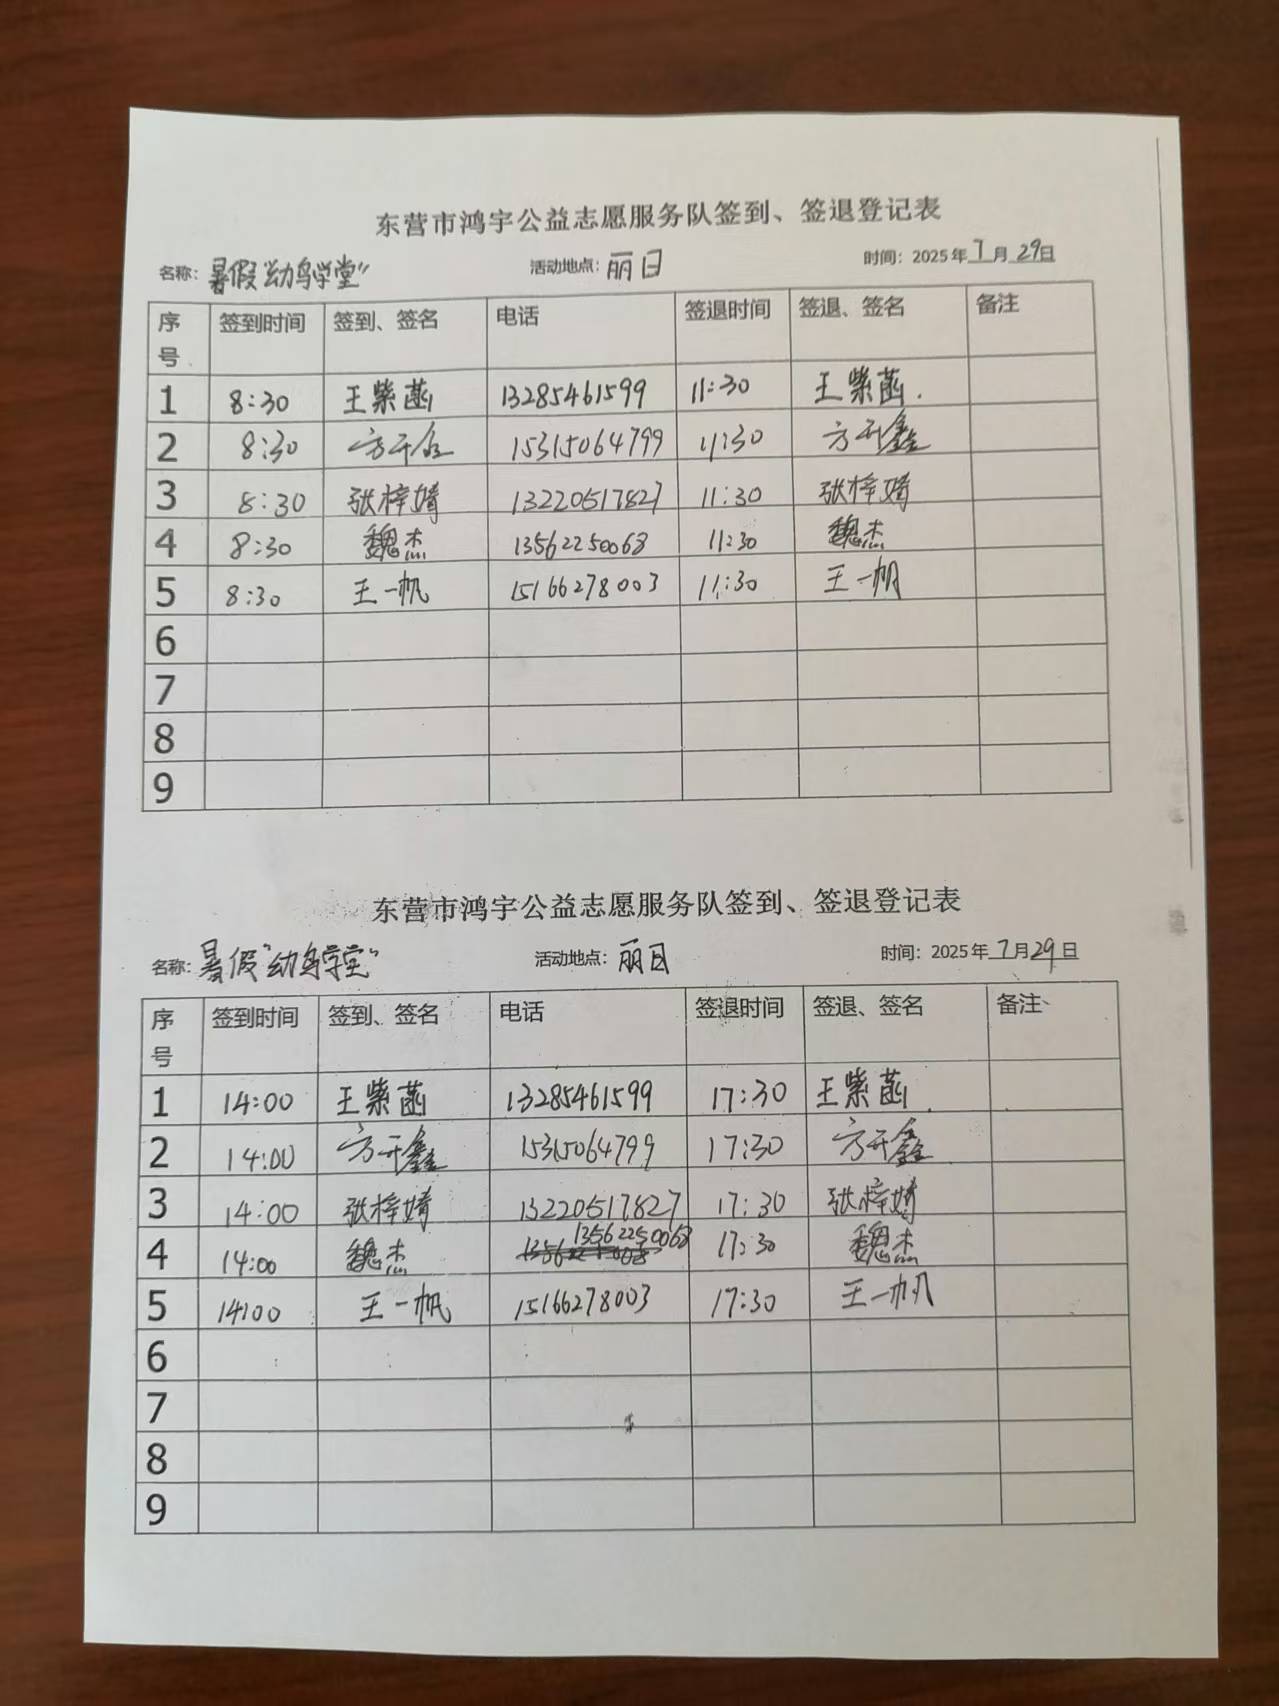 东营市鸿宇公益志愿服务队签到、签退登记表
名称：暑假“幼鸟学堂” 活动地点：丽日 时间：2025年7月29日
序号 签到时间 签到、签名 电话 签退时间 签退、签名 备注
1 8:30 王紫菡 13285461599 11:30 王紫菡.
2 8:30 方开鑫 15315064799 11:30 方开鑫
3 8:30 张梓婧 13220517827 11:30 张梓婧
4 8:30 魏杰 13562250068 11:30 魏杰
5 8:30 王一帆 15166278003 11:30 王一帆
6
7
8
9
东营市鸿宇公益志愿服务队签到、签退登记表
名称：暑假“幼鸟学堂” 活动地点：丽日 时间：2025年7月29日
序号 签到时间 签到、签名 电话 签退时间 签退、签名 备注
1 14:00 王紫菡 13285461599 17:30 王紫菡.
2 14:00 方开鑫 15315064799 17:30 方开鑫
3 14:00 张梓婧 13220517827 17:30 张梓婧
4 14:00 魏杰 13562250068 17:30 魏杰
5 14:00 王一帆 15166278003 17:30 王一帆
6
7
8
9